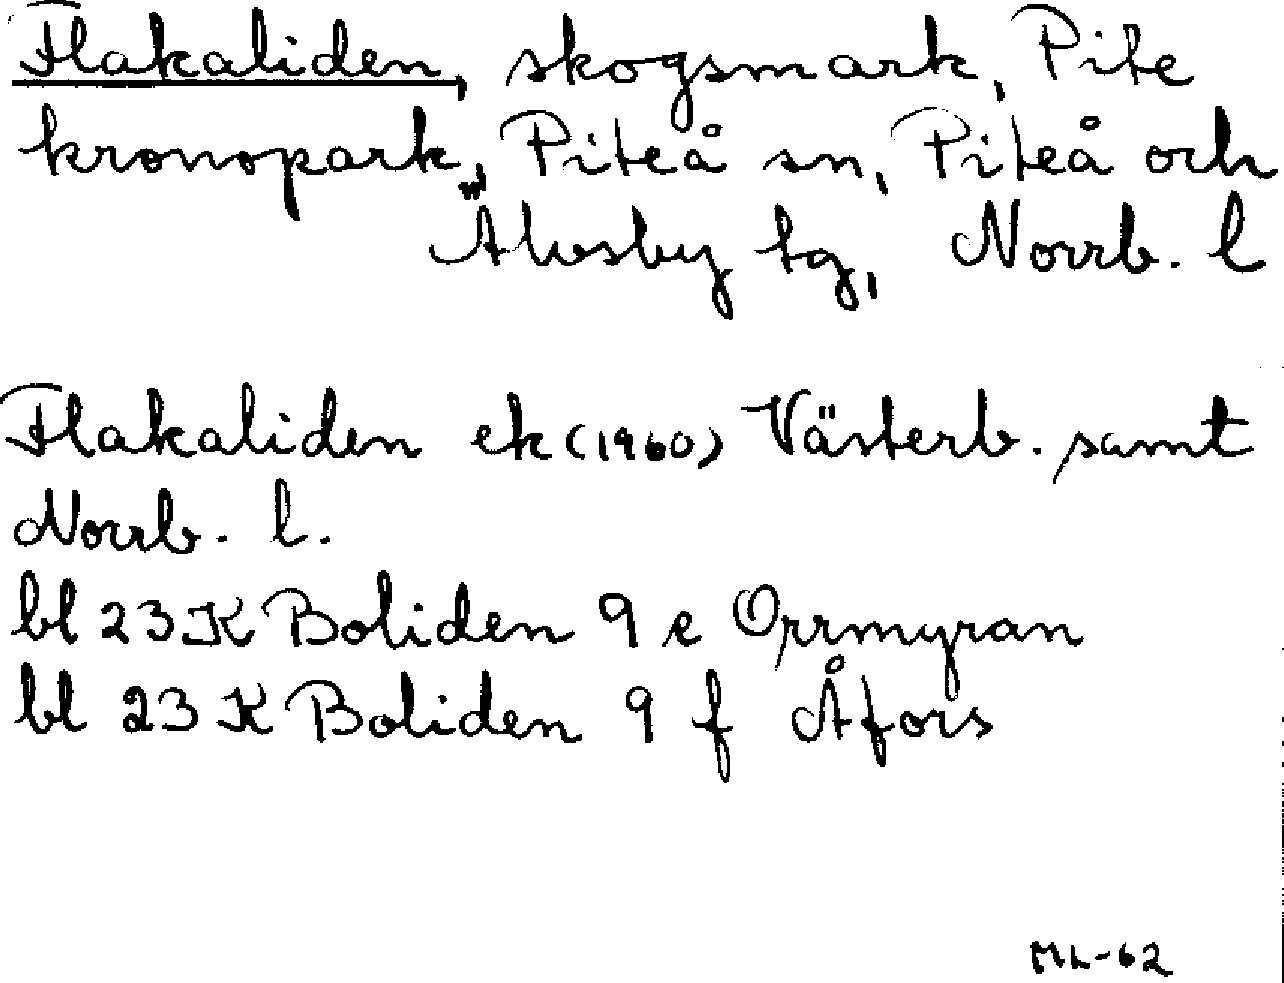 Flakaliden, skogsmark, Pite
kronopark, Piteå sn, Piteå och
Älvsby tg, Norrb. l
Flakaliden ek (1960) Västerb. samt
Norrb. l.
bl 23 K Boliden 9 e Orrmyran
bl 23 K Boliden 9 f Åfors
ML-62